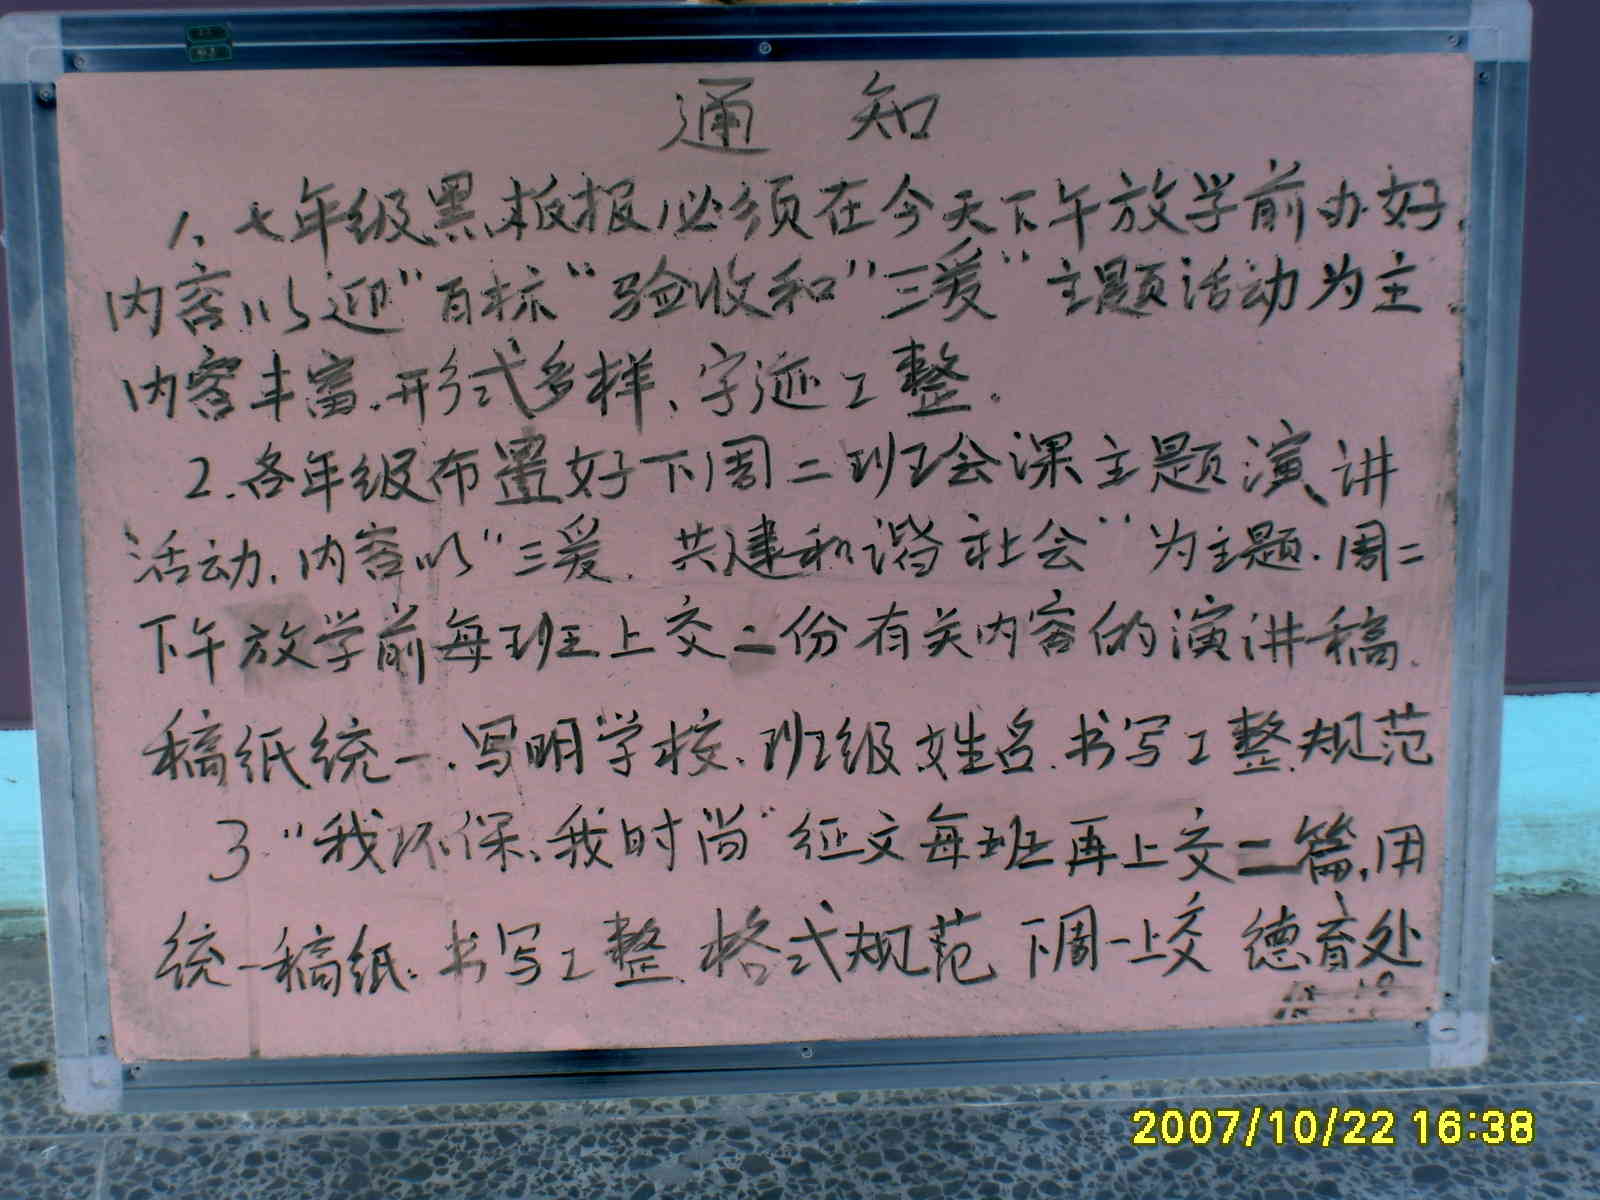 通知
1、七年级黑板报必须在今天下午放学前办好.
内容以迎"百标"验收和"三爱"主题活动为主.
内容丰富.形式多样、字迹工整.
2.各年级布置好下周二班会课主题演讲
活动.内容以"三爱.共建和谐社会"为主题.周二
下午放学前每班上交二份有关内容的演讲稿.
稿纸统一.写明学校.班级姓名.书写工整.规范
3."我环保、我时尚"征文每班再上交二篇.用
统一稿纸.书写工整.格式规范 下周一上交 德育处
2007/10/22 16:38